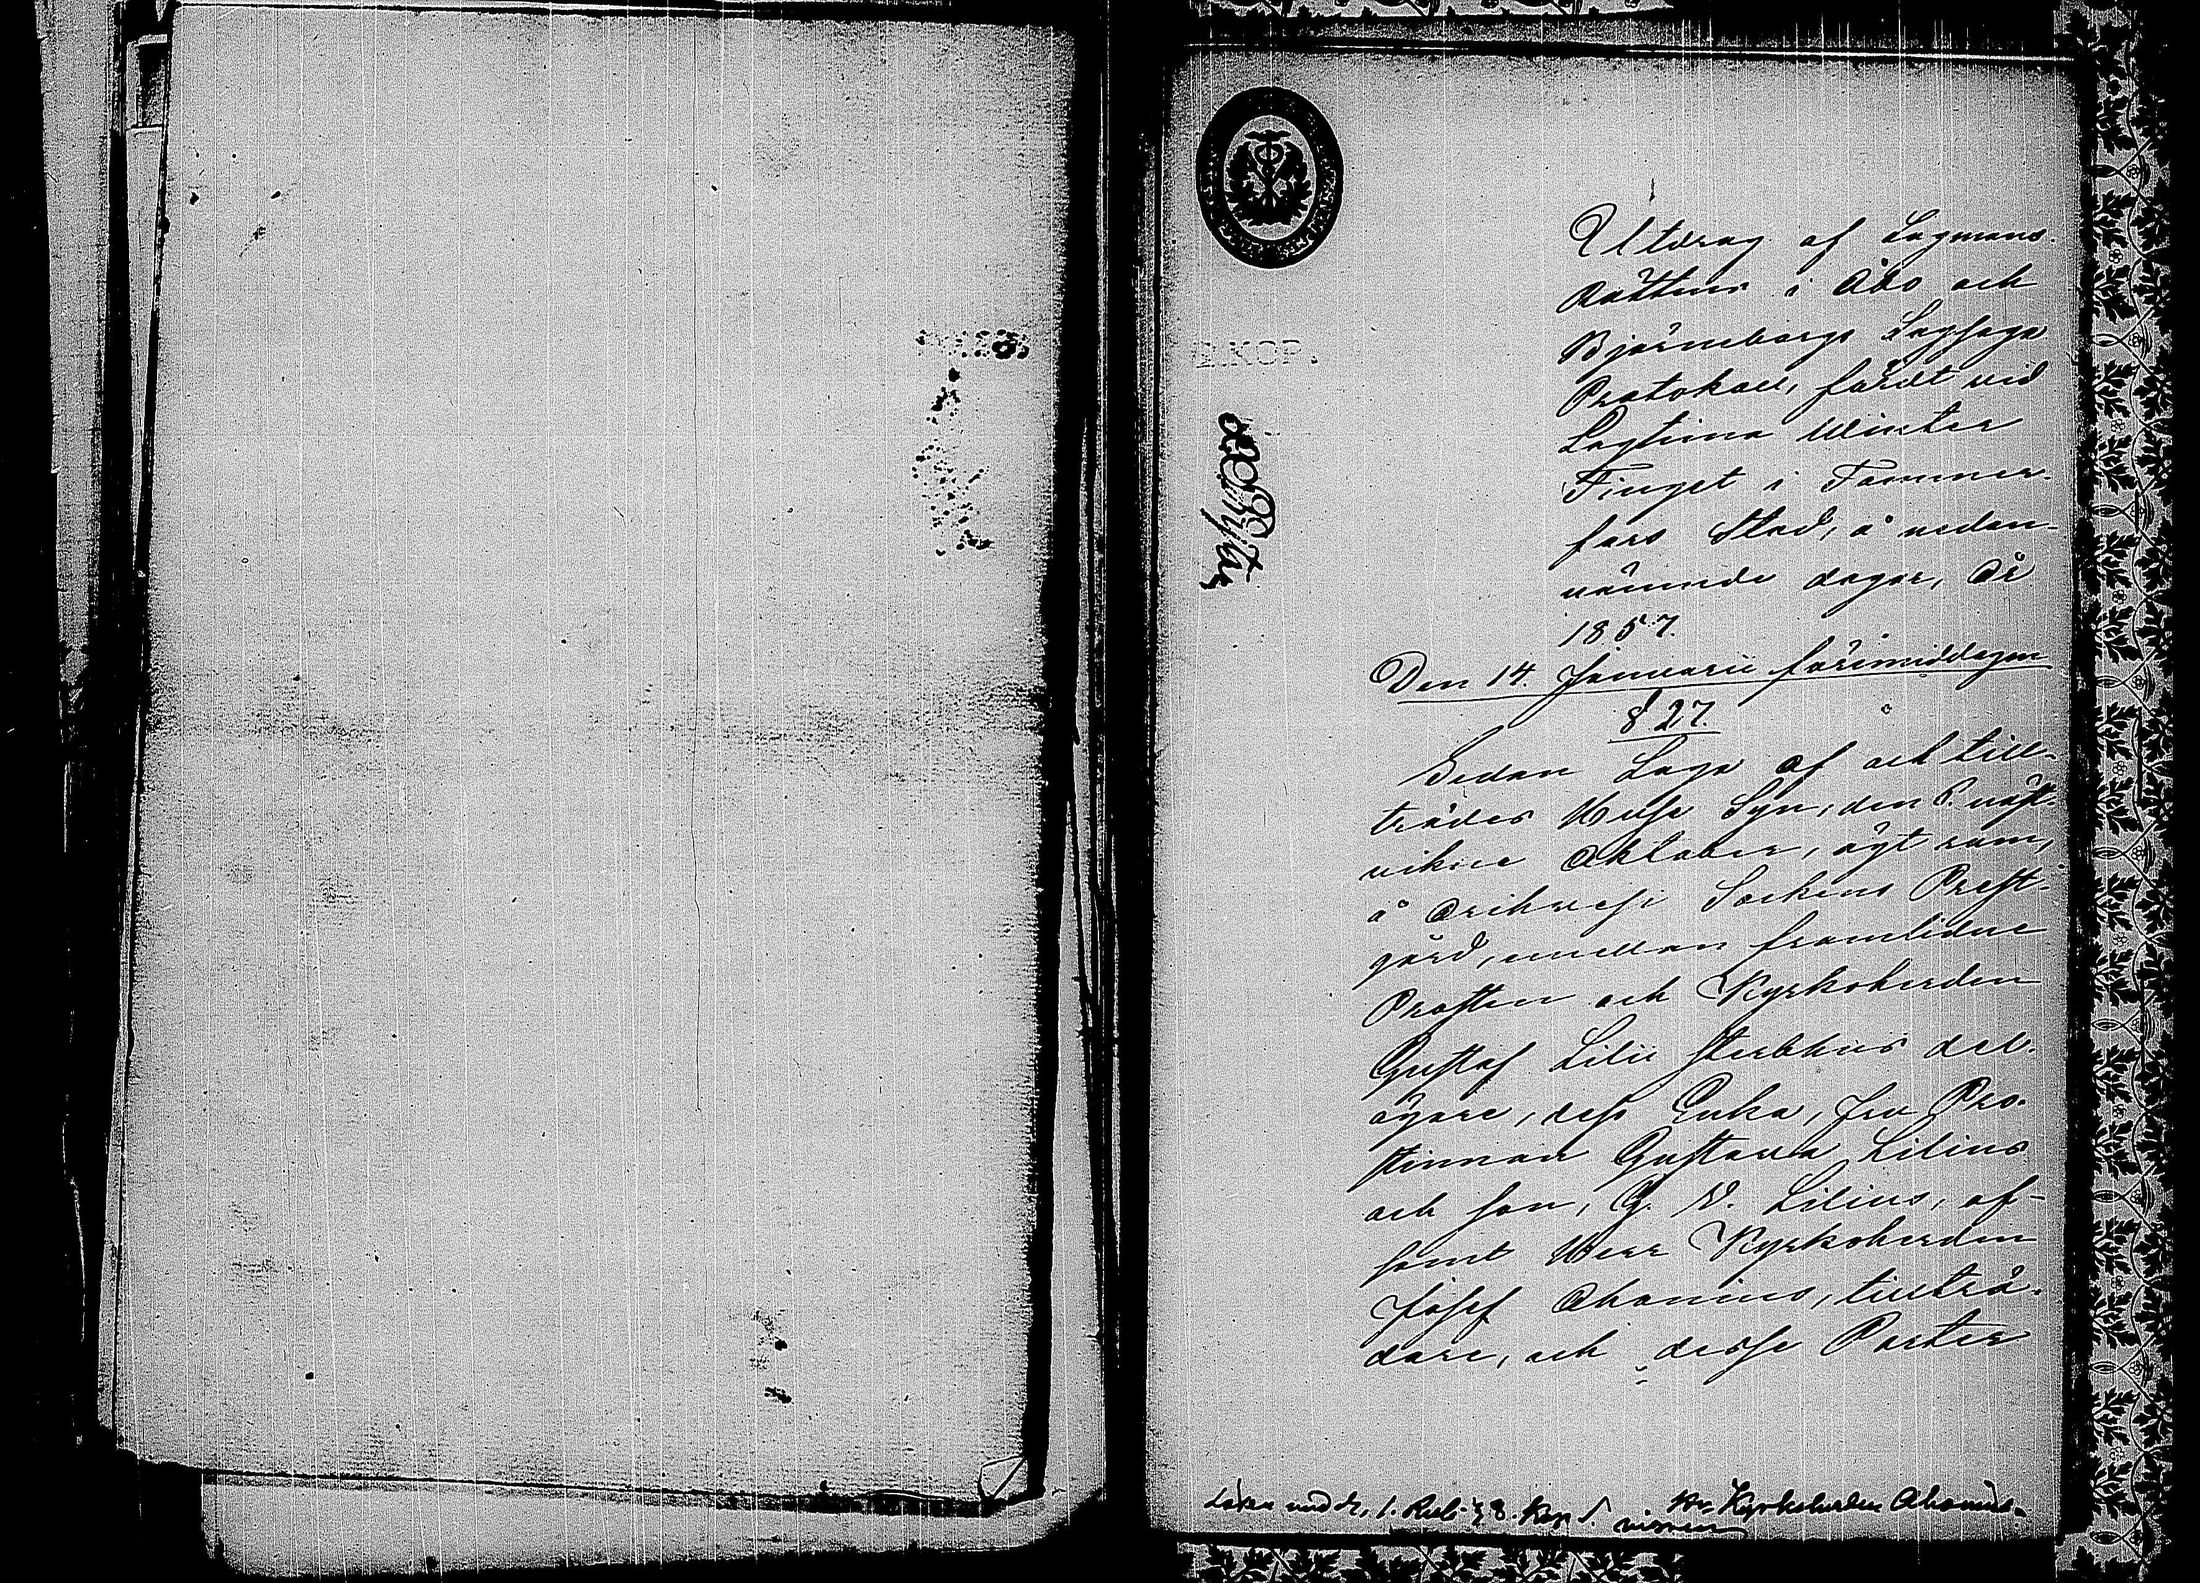 Utdrag af Lagmans-
Rättens i Åbo och
Björneborgs Lagsaga
Protokoll, fördt vid
Lagtima Winter
Tinget i Tammer-
fors Stad, å nedan-
nämnde dagar, År
1857.
Den 14. Januarii förmiddagen
§ 27.
2.KOP.
Sedan Laga af och till-
trädes Huse Syn, den 8. näst-
vikne Oktober, ägt rum,
å Orihvesi Sockens Prest-
gård, emellan framlidne
Prosten och Kyrkoherden
Gustaf Lilii sterbhus del-
ägare, dess Enka, fru Pro-
stinnan Gustava Lilius
och son, G. W. Lilius, af-
samt Herr Kyrkoherden
Josef Ahonius, tillträ-
dare, och desse Parter
Lösen med 1. Rub. 8. Kop. S.
Hr Kyrkoherden Ahonius.